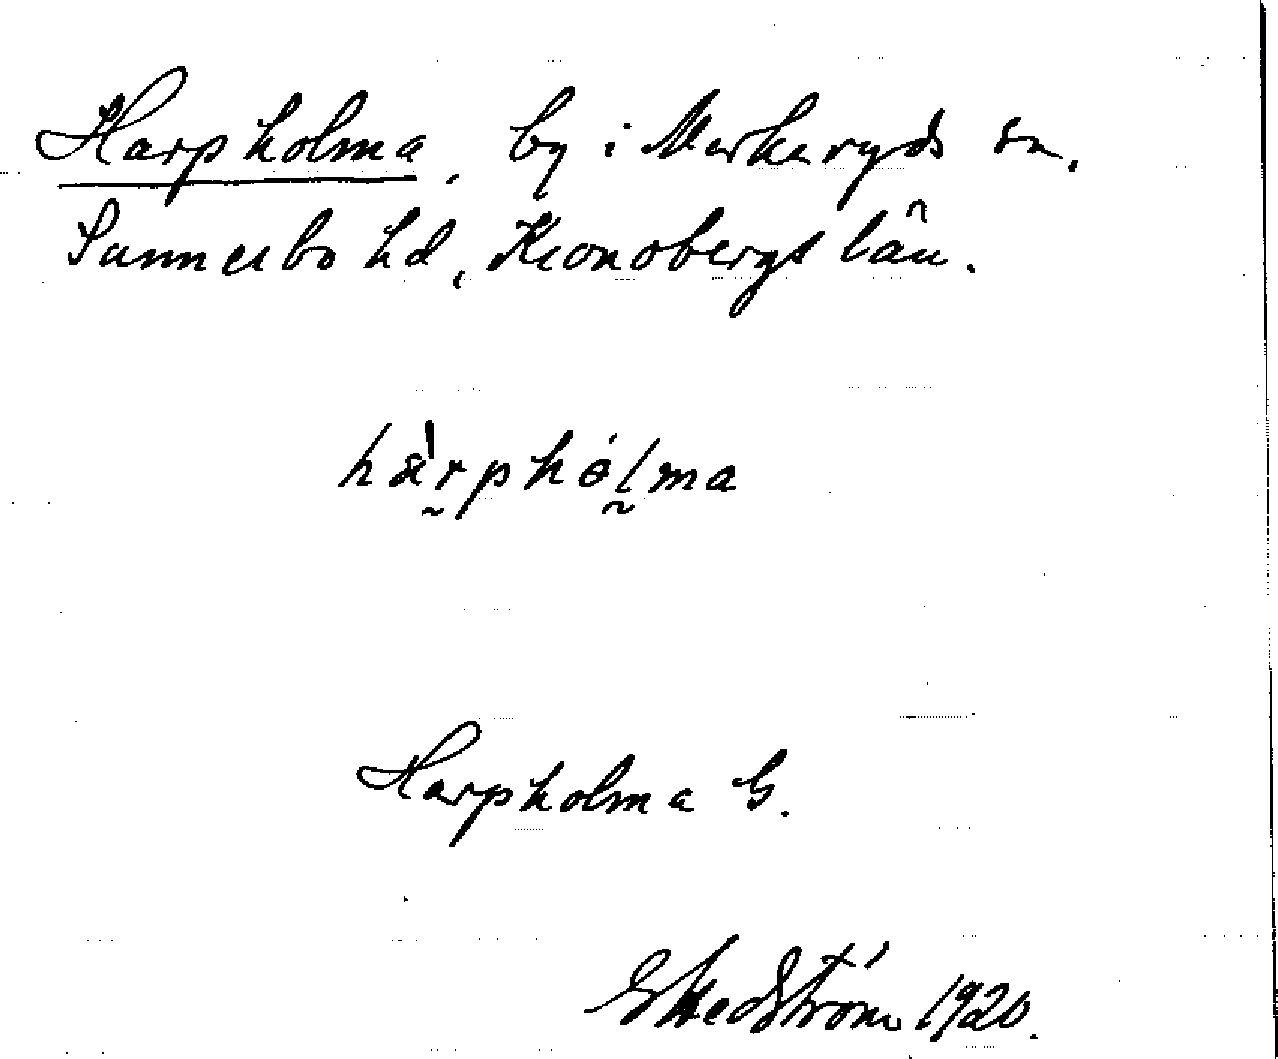 Harpholma, by i Markaryds sn,
Sunnerbo hd, Kronobergs län.
hàrphólma
Harpholma G.
G Hedström 1920.